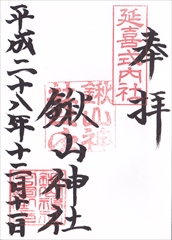 奉拝
延喜式内社
鍬山神社
平成二十八年十二月十一日